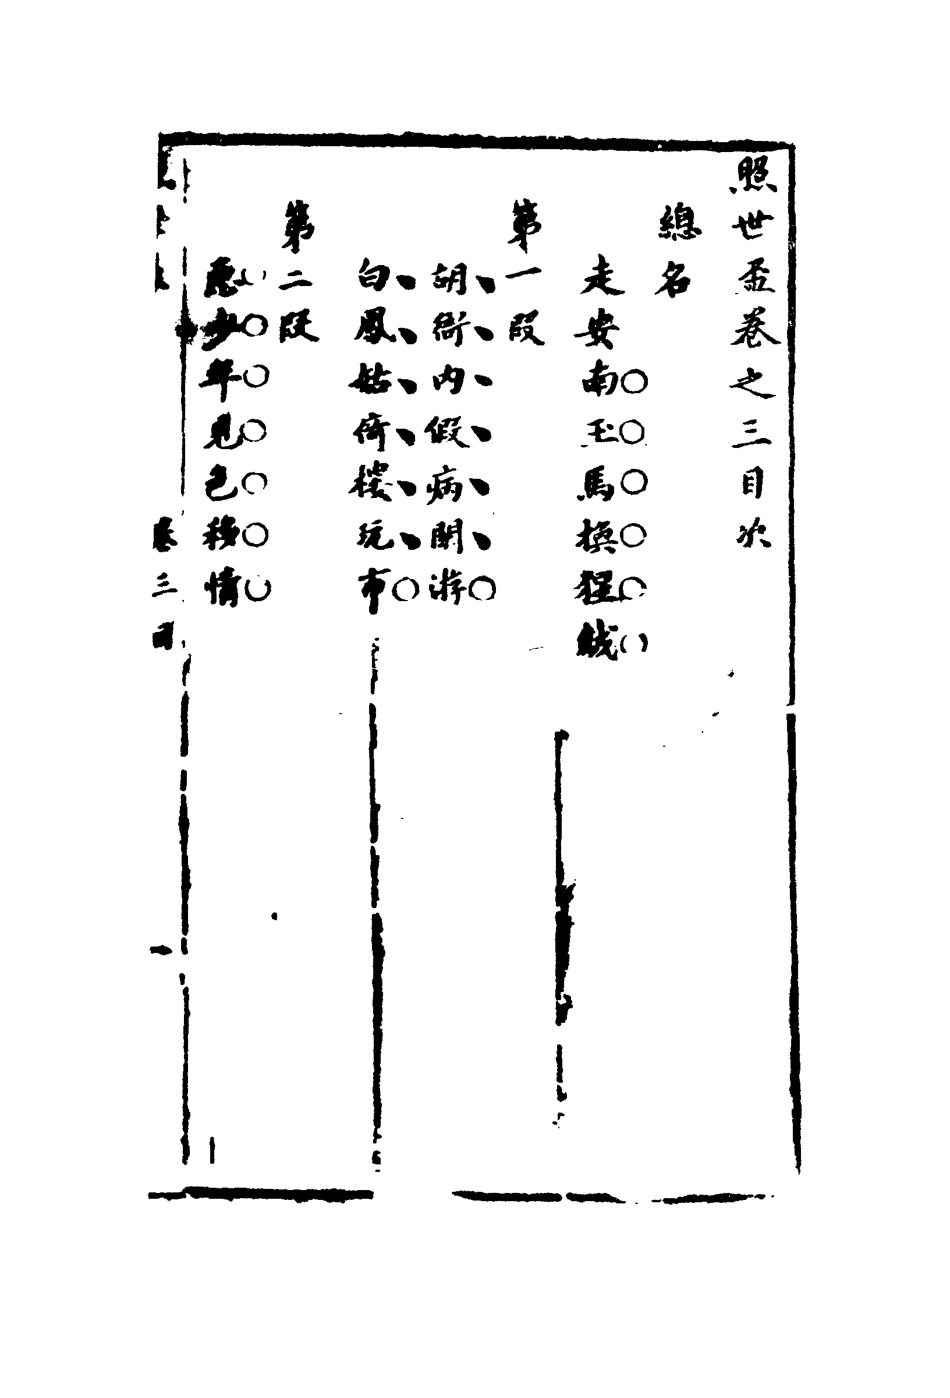 照世盃卷之三目次
總名
走安南玉馬換猩絨
第一段
胡衙內假病閒游
白鳳姑倚樓玩市
第二段
惡少年見色移情
卷三目
一